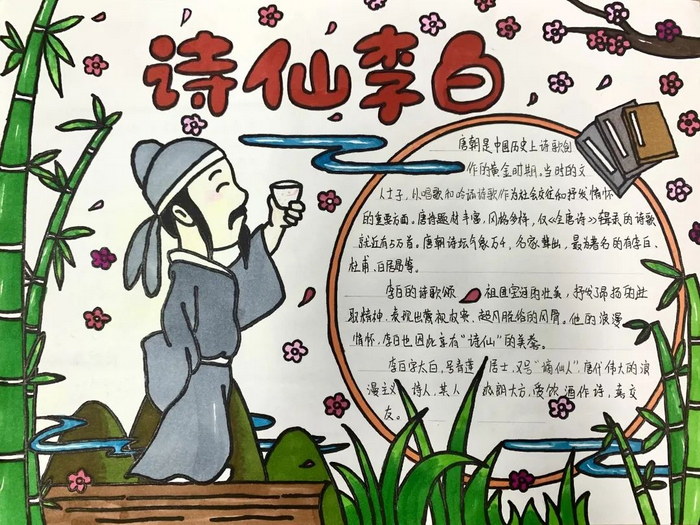 诗仙李白
唐朝是中国历史上诗歌创
作的黄金时期。当时的文
人士子，以唱歌和吟诵诗歌作为社会交往和抒发情怀
的重要方面。唐诗题材丰富，风格多样，仅《全唐诗》辑录的诗歌
就近有5万首。唐朝诗坛气象万千，名家辈出，最为著名的有李白、
杜甫、白居易等。
李白的诗歌颂 祖国河山的壮美，抒发了昂扬的进
取精神，表现出蔑视权贵、超凡脱俗的风骨。他的浪漫
情怀，李白也因此享有“诗仙”的美誉。
李白字太白，号青莲 居士，又号“谪仙人”，唐代伟大的浪
漫主义 诗人，其人 爽朗大方，爱饮酒作诗，喜交
友。